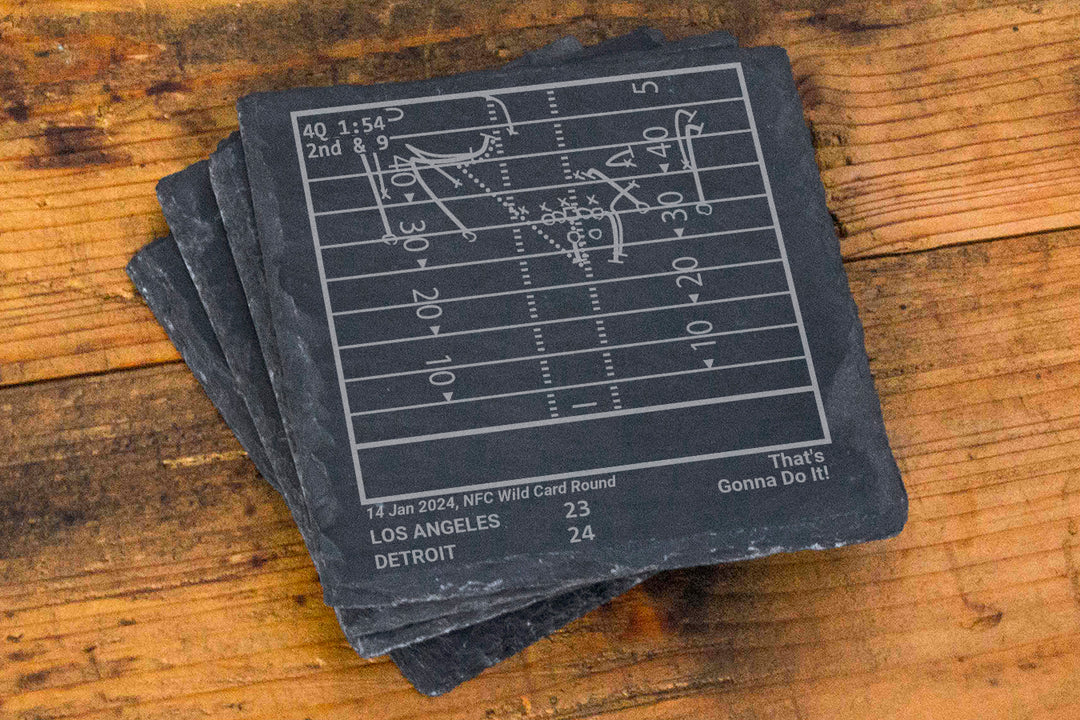 4Q 1:54
2nd & 9
5
40 40
30 30
20 20
10 10
14 Jan 2024, NFC Wild Card Round
LOS ANGELES 23
DETROIT 24
That's
Gonna Do It!